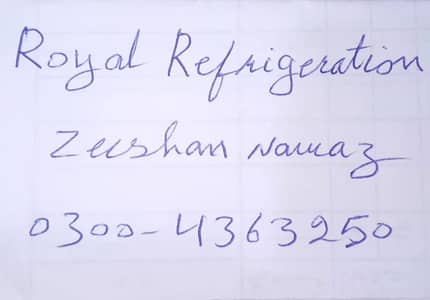 Royal Refrigeration
Zeeshan Nawaz
0300-4363250